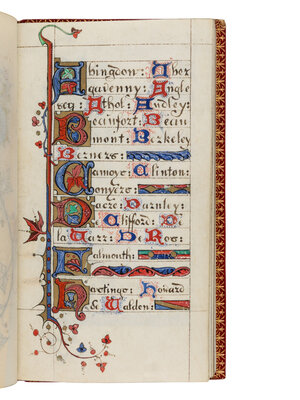 Abingdon: Aber
gavenny: Angle
sey: Athol: Audley:
Beaufort: Beau
mont: Berkeley
Berners:
Camoys: Clinton:
Conyers:
Dacre: Darnley:
Clifford: De
la Warr: De Ros:
Falmouth:
Hastings: Howard
de Walden: